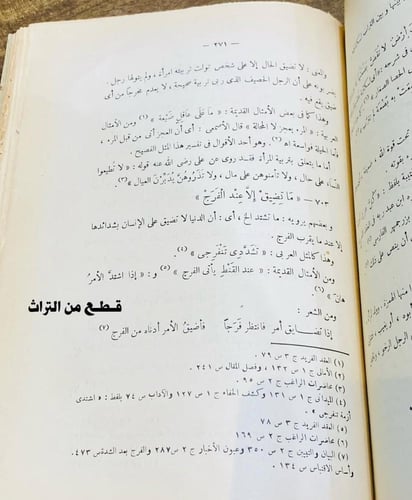 — ٢٧١ —
والمعنى : لا تضيق الحال إلا على شخص تولت تربيته امرأة ، ولم يتولها رجل .
يريدون بهم على أن الرجل الحصيف الذى ربى تربية صحيحة ، لا يعدم مخرجاً من أى
ضيق يقع فيه .
وهذا كما في بعض الأمثال القديمة : « ما على عاقل ضيعة » (١) ومن الأمثال
العربية : « المرء يعجز لا المحالة » قال الأصمعى : أى أن العجز أتى من قبل المرء ،
فأما الحيلة فواسعة اه (٢) . وهو أحد الأقوال في تفسير هذا المثل الفصيح .
أما ما يتعلق بتربية المرأة فقد روى عن على رضى الله عنه قوله : « لا تطيعوا
النساء على حال ، ولا تأمنوهن على مال ، ولا تذروهن يدبرن العيال » (٣) .
٧٠٣ — « ما تضيق إلا عند الفرج »
وبعضهم يرويه : ما تشتد الخ ، أى : أن الدنيا لا تضيق على الإنسان بشدائدها
إلا عند ما يقرب الفرج .
وهذا كالمثل العربى : « تشددى تنفرجى » (٤) .
ومن الأمثال القديمة : « عند القنط يأتى الفرج » (٥) و : « إذا اشتد الأمر
هان » (٦) .
ومن الشعر :
إذا تضايق أمر فانتظر فرجاً فأضيق الأمر أدناه من الفرج (٧)
قطع من التراث
(١) العقد الفريد ج ٣ ص ٧٩ .
(٢) الأمالى ج ١ ص ١٣٢ ، وفصل المقال ص ٢٤١ .
(٣) محاضرات الراغب ج ٢ ص ٩٥ .
(٤) الميدانى ج ١ ص ١٣١ وكشف الخفاء ج ١ ص ١٢٧ والآداب ص ٧٤ بلفظ : « اشتدى
أزمة تنفرجى » .
(٥) العقد الفريد ج ٣ ص ٧٨
(٦) محاضرات الراغب ج ٢ ص ١٦٩
(٧) البيان والتبيين ج ٢ ص ٣٥٠ وعيون الأخبار ج ٢ ص ٢٨٧ والفرج بعد الشدة ص ٤٧٣ .
وأساس الاقتباس ص ١٣٤ .